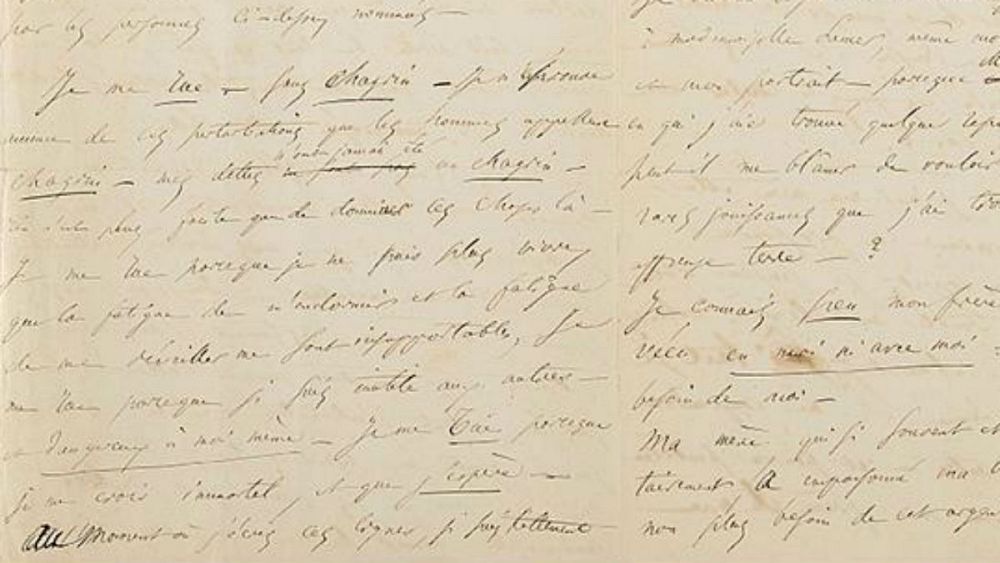 par les personnes ci-dessus nommées —
Je me tue — sans chagrin — Je n'éprouve
aucune de ces perturbations que les hommes appellent
chagrin — mes dettes n'ont jamais été un chagrin —
plus facile que de dominer ces choses là —
Je me tue parceque je ne puis plus vivre,
que la fatigue de m'endormir et la fatigue
de me réveiller me sont insupportables, Je
me tue parceque je suis inutile aux autres —
et dangereux à moi même — Je me tue parceque
je me crois immortel, et que j'espère —
Au moment où j'écris ces lignes, je suis tellement
à mademoiselle Lemer, même
et mon portrait — parceque
en qui j'aie trouvé quelque
peut-il me blâmer de vouloir
rares jouissances que j'ai
affreuse terre — ?
Je connais peu mon frère
vécu en moi ni avec moi —
besoin de moi —
Ma mère qui si souvent et
tairement a empoisonné ma
non plus besoin de cet argent